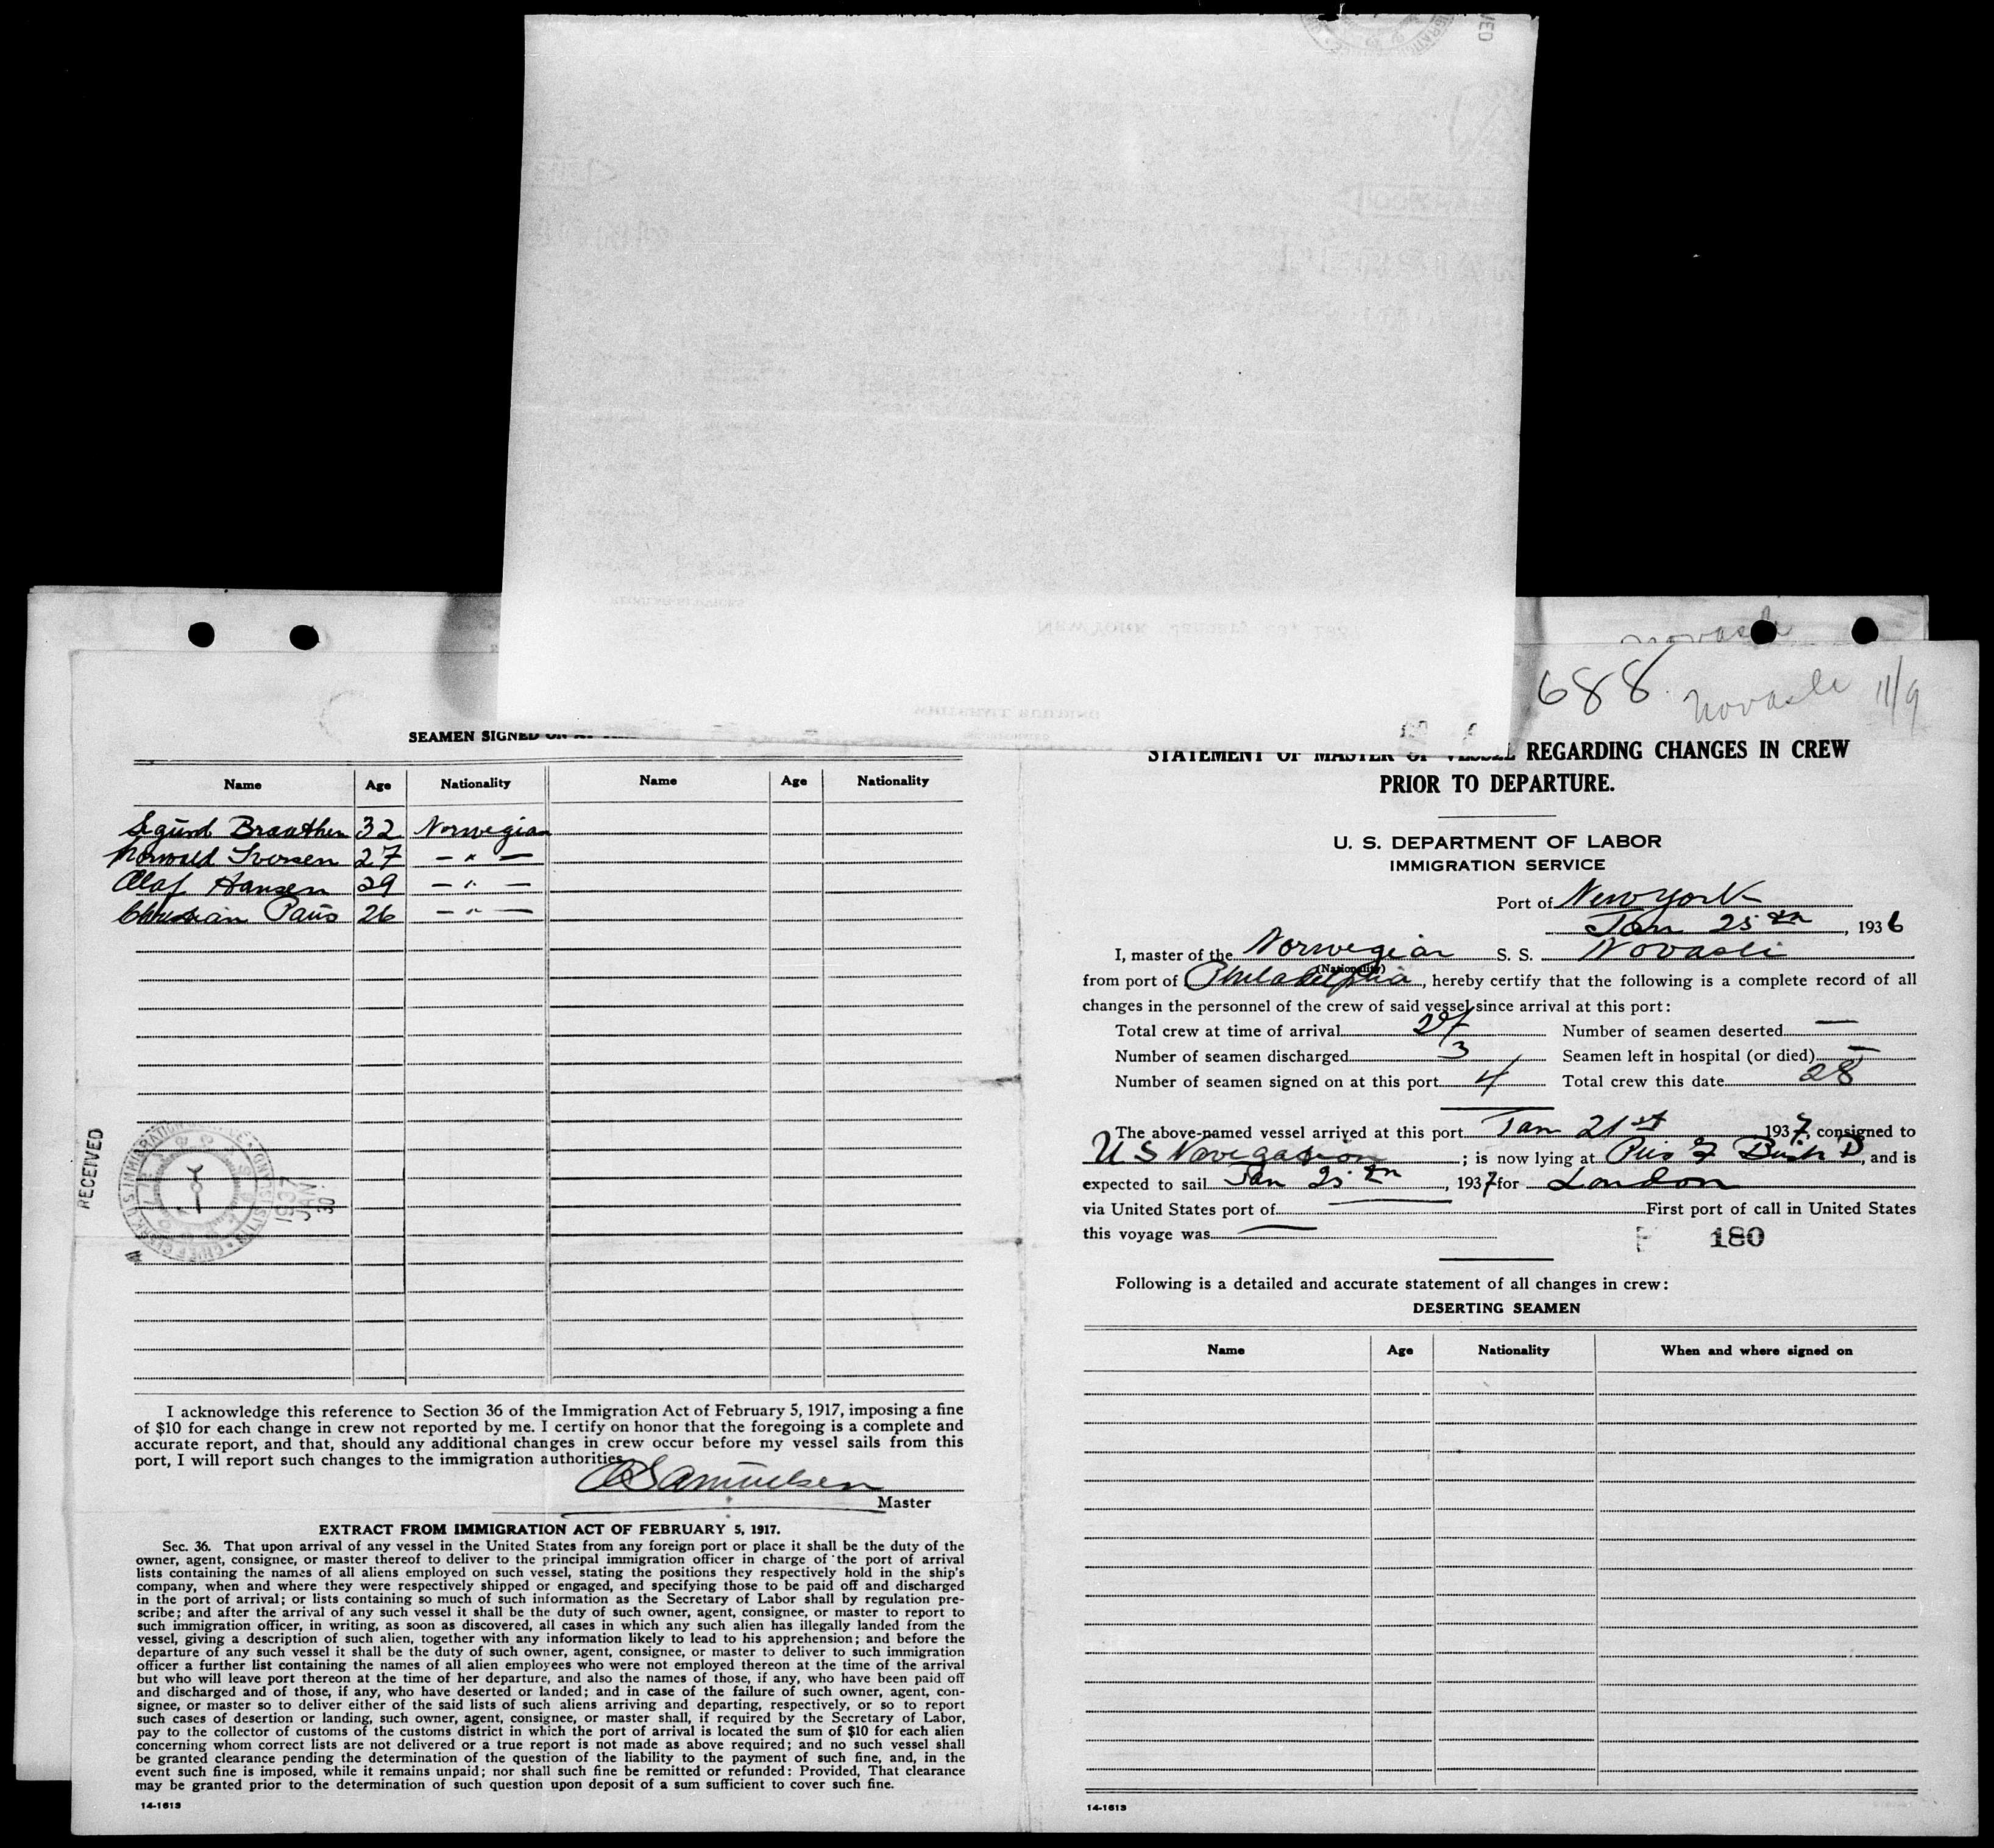 688
Novasli 11/9
SEAMEN SIGNED ON AT
Name Age Nationality Name Age Nationality
Sigurd Braathen 32 Norwegian
Iversen 27 - " -
Olaf Hansen 29 - " -
Christian Paus 26 - " -
RECEIVED
JAN 30
1937
I acknowledge this reference to Section 36 of the Immigration Act of February 5, 1917, imposing a fine
of $10 for each change in crew not reported by me. I certify on honor that the foregoing is a complete and
accurate report, and that, should any additional changes in crew occur before my vessel sails from this
port, I will report such changes to the immigration authorities.
Samuelsen
Master
EXTRACT FROM IMMIGRATION ACT OF FEBRUARY 5, 1917.
Sec. 36. That upon arrival of any vessel in the United States from any foreign port or place it shall be the duty of the
owner, agent, consignee, or master thereof to deliver to the principal immigration officer in charge of the port of arrival
lists containing the names of all aliens employed on such vessel, stating the positions they respectively hold in the ship's
company, when and where they were respectively shipped or engaged, and specifying those to be paid off and discharged
in the port of arrival; or lists containing so much of such information as the Secretary of Labor shall by regulation pre-
scribe; and after the arrival of any such vessel it shall be the duty of such owner, agent, consignee, or master to report to
such immigration officer, in writing, as soon as discovered, all cases in which any such alien has illegally landed from the
vessel, giving a description of such alien, together with any information likely to lead to his apprehension; and before the
departure of any such vessel it shall be the duty of such owner, agent, consignee, or master to deliver to such immigration
officer a further list containing the names of all alien employees who were not employed thereon at the time of the arrival
but who will leave port thereon at the time of her departure, and also the names of those, if any, who have been paid off
and discharged and of those, if any, who have deserted or landed; and in case of the failure of such owner, agent, con-
signee, or master so to deliver either of the said lists of such aliens arriving and departing, respectively, or so to report
such cases of desertion or landing, such owner, agent, consignee, or master shall, if required by the Secretary of Labor,
pay to the collector of customs of the customs district in which the port of arrival is located the sum of $10 for each alien
concerning whom correct lists are not delivered or a true report is not made as above required; and no such vessel shall
be granted clearance pending the determination of the question of the liability to the payment of such fine, and, in the
event such fine is imposed, while it remains unpaid; nor shall such fine be remitted or refunded: Provided, That clearance
may be granted prior to the determination of such question upon deposit of a sum sufficient to cover such fine.
14-1613
STATEMENT OF MASTER OF VESSEL REGARDING CHANGES IN CREW
PRIOR TO DEPARTURE.
U. S. DEPARTMENT OF LABOR
IMMIGRATION SERVICE
Port of New York
Jan 25th, 1936
I, master of the Norwegian S. S. Novasli
(Nationality)
from port of Philadelphia, hereby certify that the following is a complete record of all
changes in the personnel of the crew of said vessel since arrival at this port:
Total crew at time of arrival 27 Number of seamen deserted —
Number of seamen discharged 3 Seamen left in hospital (or died) —
Number of seamen signed on at this port 4 Total crew this date 28
The above-named vessel arrived at this port Jan 21st 1937, consigned to
U S Navigation; is now lying at Bush D, and is
expected to sail Jan 25th, 1937 for London
via United States port of — First port of call in United States
this voyage was —
180
Following is a detailed and accurate statement of all changes in crew:
DESERTING SEAMEN
Name Age Nationality When and where signed on
14-1613